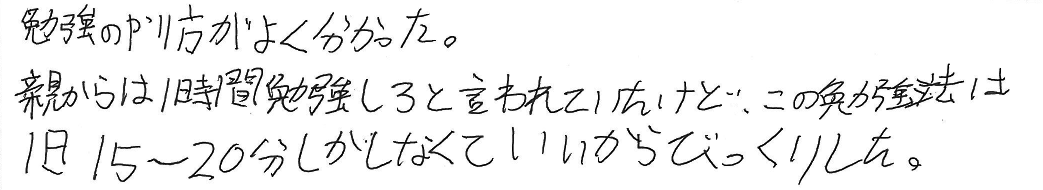 勉強のやり方がよく分かった。
親からは1時間勉強しろと言われていたけど、この勉強法は
1日15～20分しかしなくていいからびっくりした。